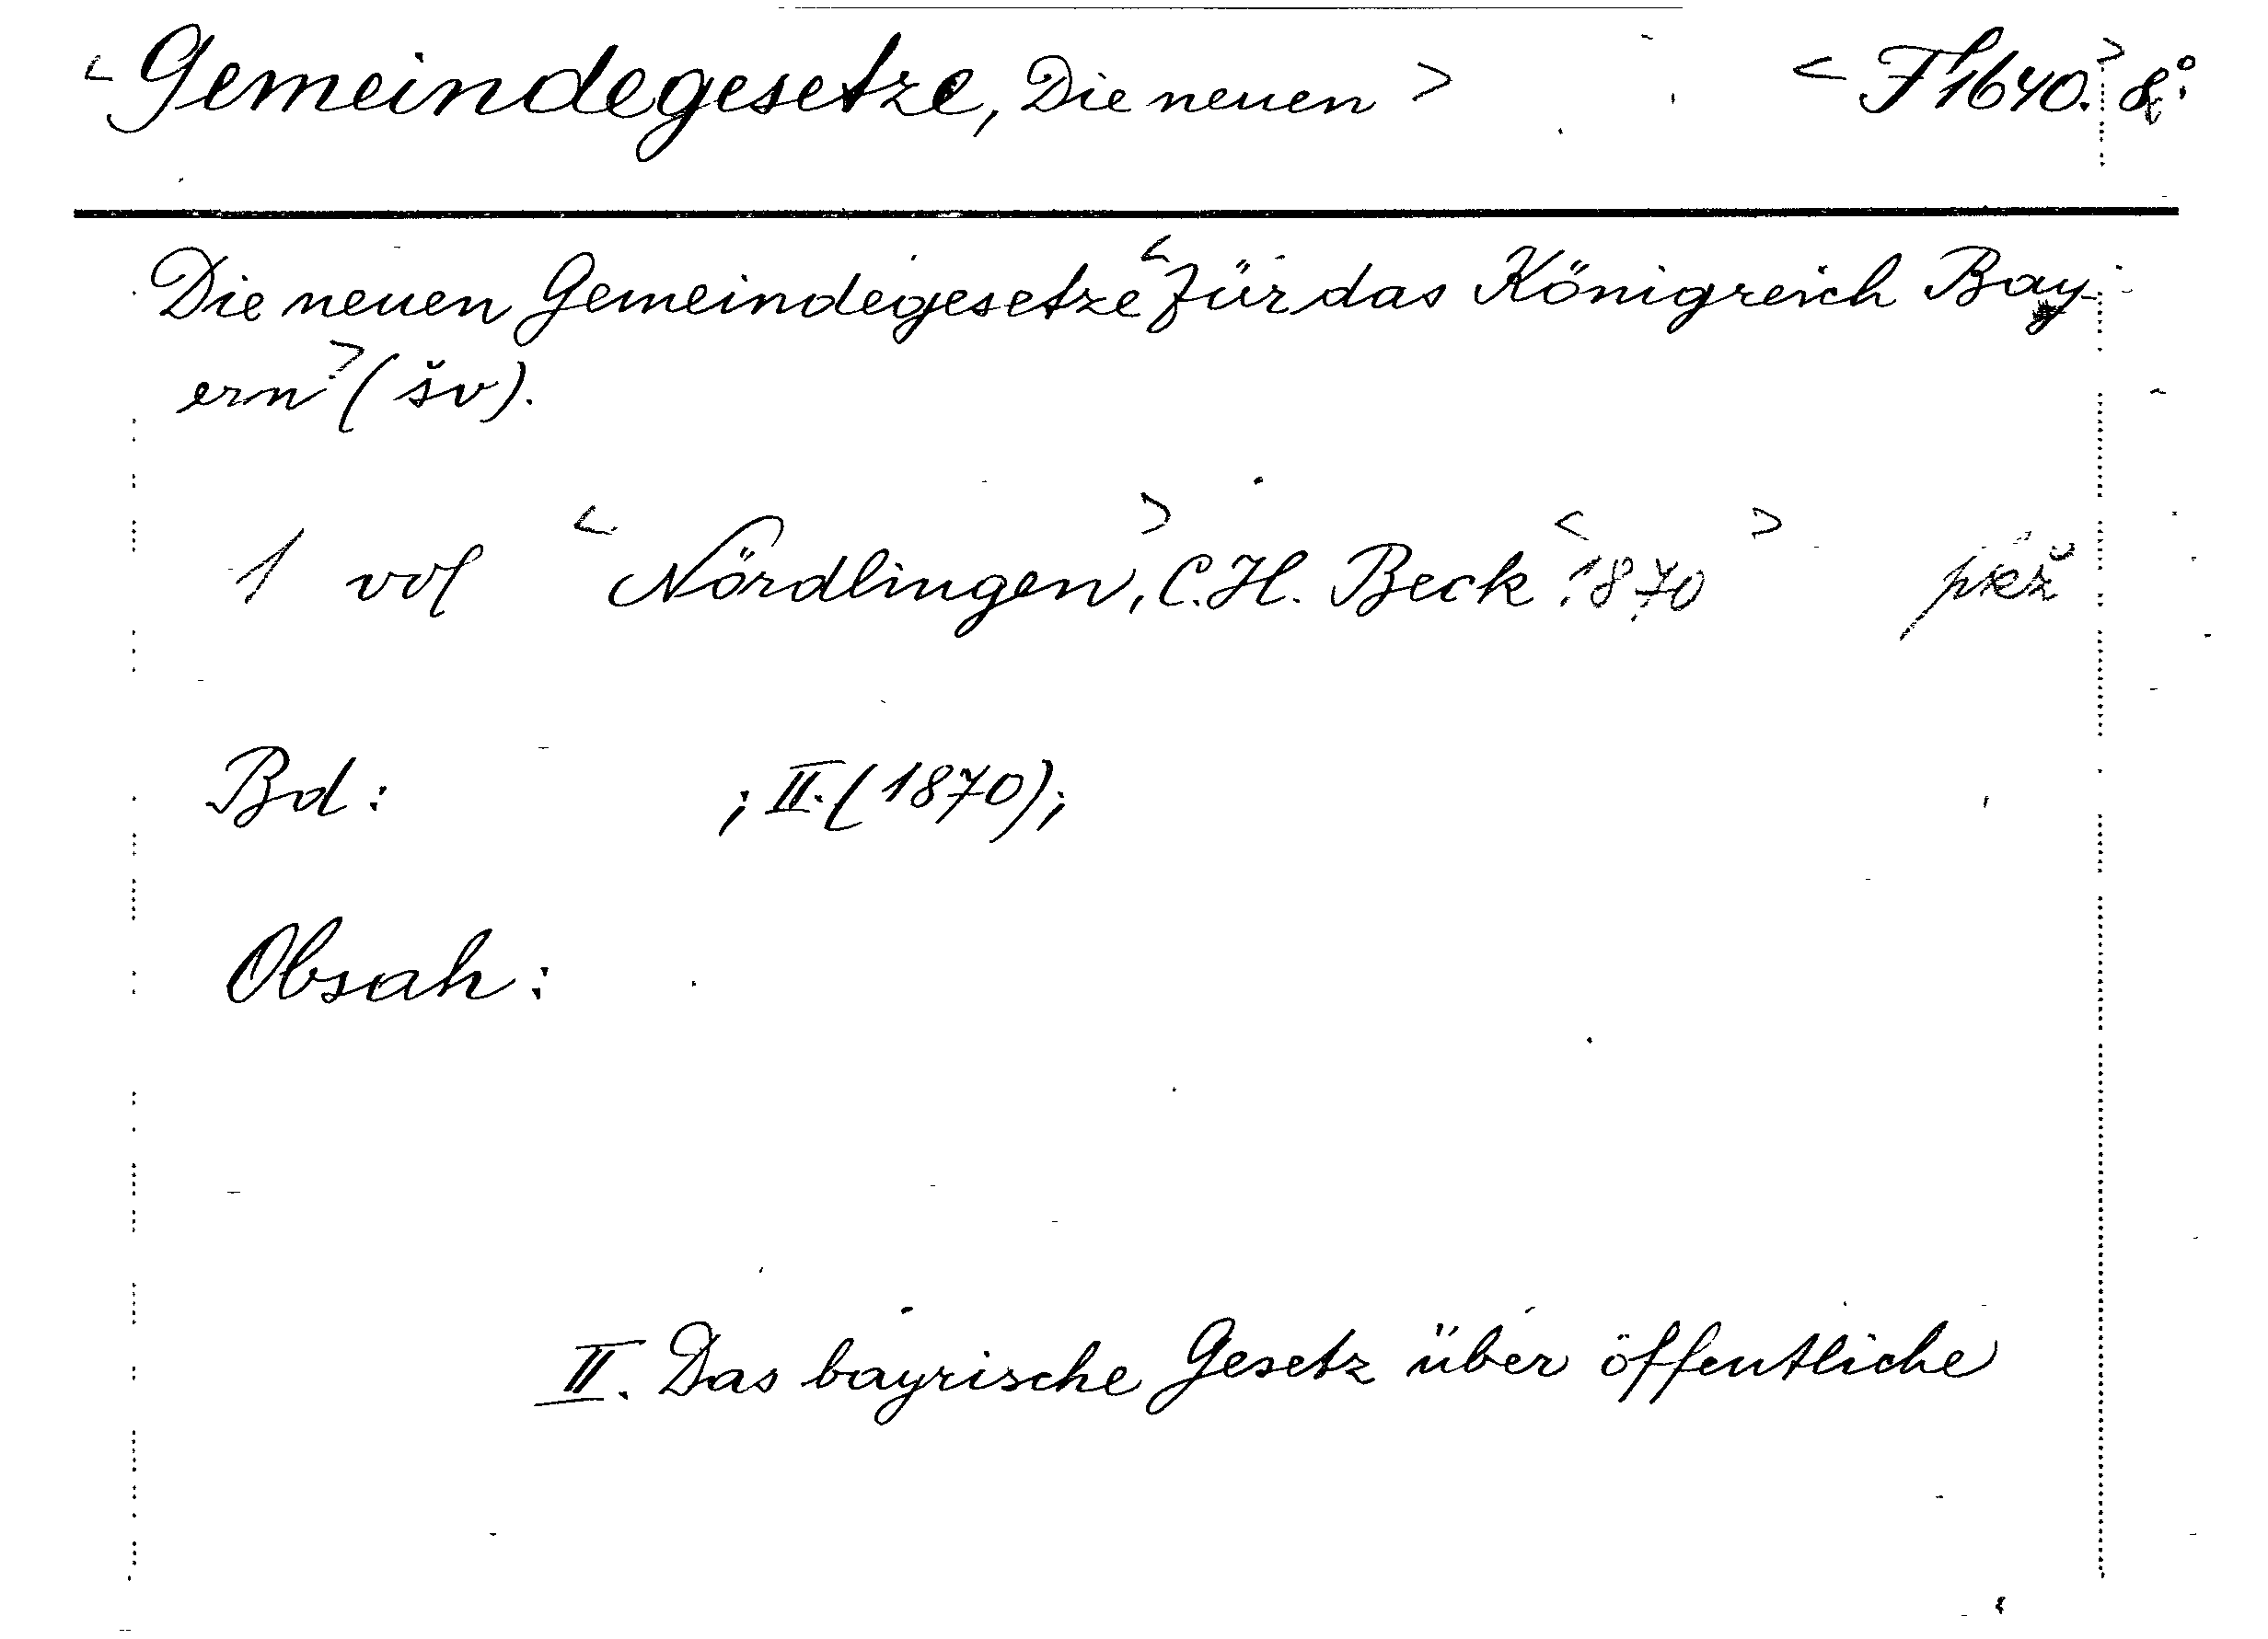 <Gemeindegesetze, Die neuen> <F 1640.> 8°.
Die neuen Gemeindegesetze <für das Königreich Bay-
ern> (šv).
1 vol <Nördlingen>, C. H. Beck <1870>
Bd: ; II. (1870);
Obsah:
II. Das bayrische Gesetz über öffentliche